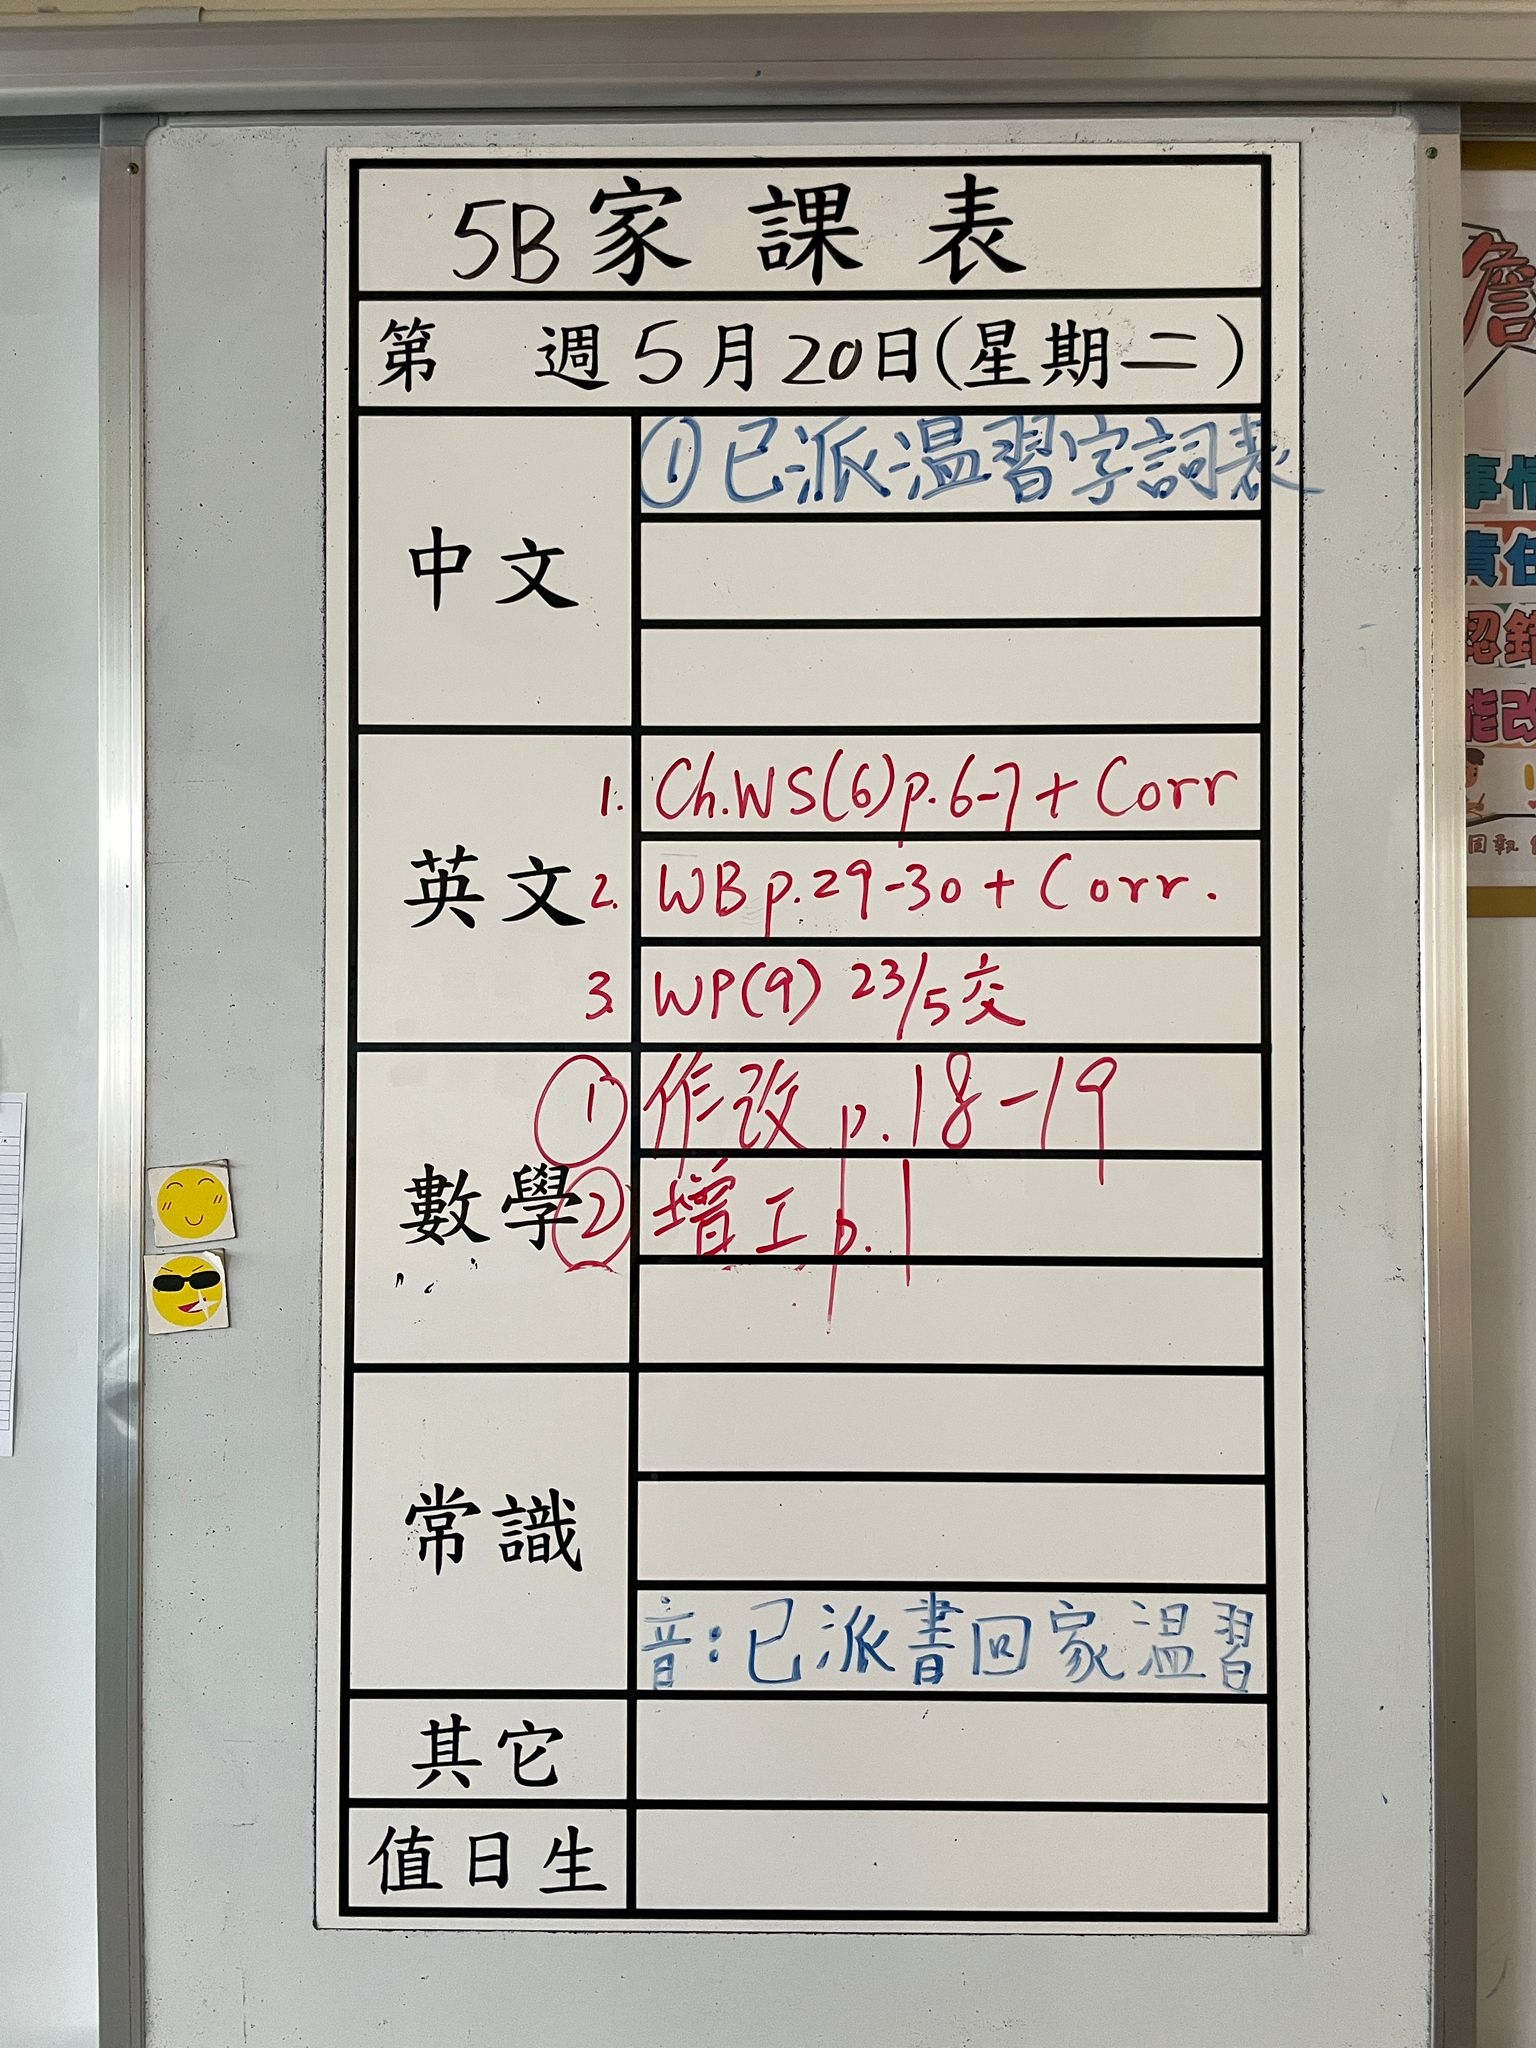 5B家課表
第 週5月20日(星期二)
中文
①已派溫習字詞表
英文
1. Ch.WS(6)p.6-7+Corr
2. WBp.29-30+Corr.
3. WP(9) 23/5交
數學
① 作改 p.18-19
② 增工 p.1
常識
音:已派書回家溫習
其它
值日生
事情
責任
認錯
能改